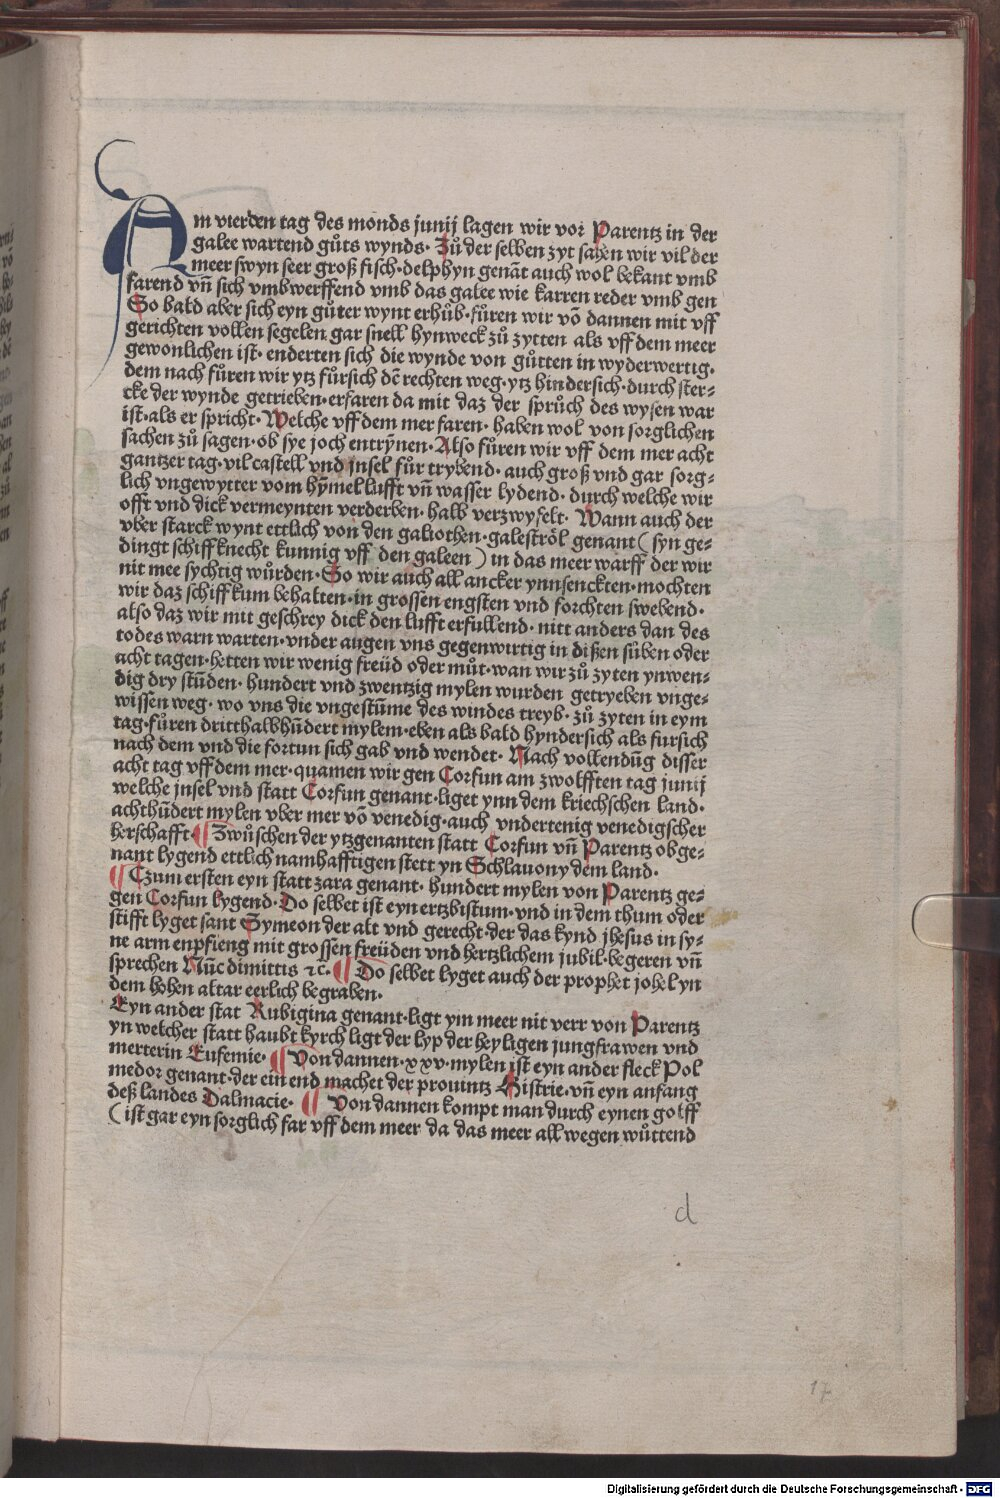 Am vierden tag des monds junij lagen wir vor Parentz in der
galee wartend gůts wynds· Zů der selben zyt sahen wir vil der
meer swyn seer groß fisch·delphyn genãt auch wol bekant vmb
farend vñ sich vmbwerffend vmb das galee wie karren reder vmb gen
So bald aber sich eyn gůter wynt erhůb·fůren wir võ dannen mit vff
gerichten vollen segelen gar snell hynweck zů zytten als vff dem meer
gewonlichen ist· enderten sich die wynde von gůtten in wyderwertig·
dem nach fůren wir ytz fůrsich dē rechten weg·ytz hindersich·durch ster-
cke der wynde getrieben·erfaren da mit daz der sprůch des wysen war
ist·als er spricht· Welche vff dem mer faren· haben wol von sorglichen
sachen zů sagen·ob sye joch entrÿnen· Also fůren wir vff dem mer acht
gantzer tag·vil castell vnd jnsel fůr trybend· auch groß vnd gar sorg-
lich vngewytter vom hỹmel lufft vñ wasser lydend· durch welche wir
offt vnd dick vermeynten verderben· halb verzwyfelt· Wann auch der
vber starck wynt ettlich von den galiothen·galeströl genant ( syn ge-
dingt schiff knecht kunnig vff den galeen ) in das meer warff der wir
nit mee sychtig wůrden· So wir auch all ancker ynnsenckten·mochten
wir daz schiff kum behalten·in grossen engsten vnd forchten swebend·
also daz wir mit geschrey dick den lufft erfullend· nitt anders dan des
todes warn warten·vnder augen vns gegenwirtig in dißen süben oder
acht tagen·hetten wir wenig freüd oder můt·wan wir zů zyten ynwen-
dig dry stũden· hundert vnd zwentzig mylen wurden getryeben vnge-
wissen weg· wo vns die vngestũme des windes treyb· zů zyten in eym
tag·fůren dritthalbhũdert mylem·eben als bald hyndersich als fursich
nach dem vnd die fortun sich gab vnd wendet· Nach vollendũg disser
acht tag vff dem mer·quamen wir gen Corfun am zwolfften tag junij
welche jnsel vnd statt Corfun genant·liget ynn dem kriechschen land·
achthũdert mylen vber mer võ venedig·auch vndertenig venedigscher
herschafft· ¶ Zwůschen der ytzgenanten statt Corfun vñ Parentz obge-
nant lygend ettlich namhafftigen stett yn Schlauony dem land·
¶ Czum ersten eyn statt zara genant· hundert mylen von Parentz ge-
gen Corfun lygend· Do selbet ist eyn ertzbistum·vnd in dem thum oder
stifft lyget sant Symeon der alt vnd gerecht·der das kynd jhesus in sy-
ne arm enpfieng mit grossen freüden vnd hertzlichem jubil·begeren vñ
sprechen Nũc dimittis ⁊c· ¶ Do selbet lyget auch der prophet johel yn
dem hohen altar eerlich begraben·
Eyn ander stat Rubigina genant·ligt ym meer nit verr von Parentz
yn welcher statt haubt kyrch ligt der lyp der heyligen jungfrawen vnd
merterin Eufemie· ¶ Von dannen·xxv·mylen ist eyn ander fleck Pol
medor genant·der ein end machet der prouintz Histrie·vñ eyn anfang
deß landes Dalmacie· ¶ Von dannen kompt man durch eynen golff
( ist gar eyn sorglich far vff dem meer da das meer all wegen wůttend
d
17
Digitalisierung gefördert durch die Deutsche Forschungsgemeinschaft · DFG